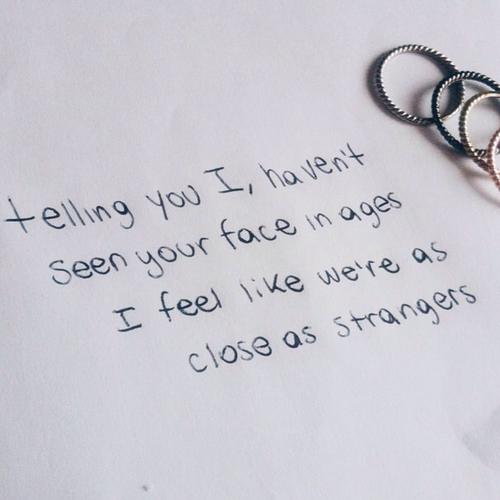 telling you I, haven't
seen your face in ages
I feel like we're as
close as strangers